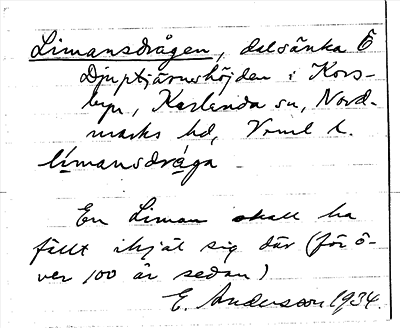 Limansdrågen, dalsänka Ö
Djuptjärnshöjden i Kors-
byn, Karlanda sn, Nord-
marks hd, Vrml l.
límansdrága
En Liman skall ha
fällt ihjäl sig där (för ö-
ver 100 år sedan)
E. Andersson 1934.